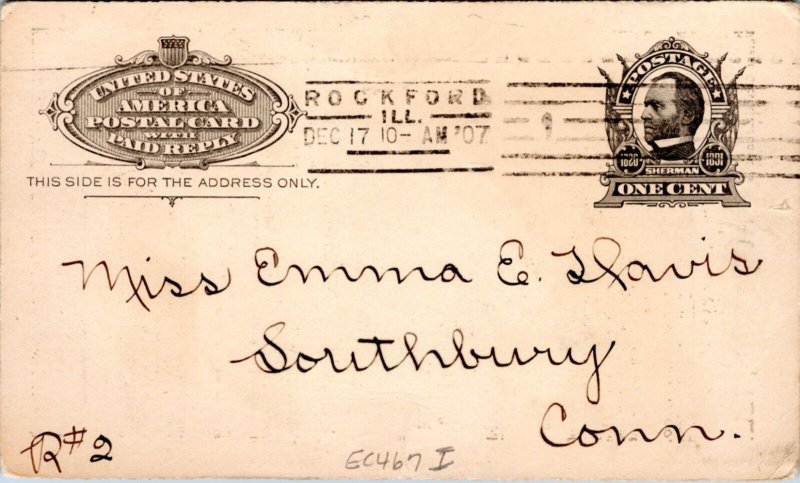 UNITED STATES
OF
AMERICA
POSTAL CARD
WITH
PAID REPLY
THIS SIDE IS FOR THE ADDRESS ONLY.
ROCKFORD
ILL.
DEC 17 10-AM '07
1
POSTAGE
1820 1891
SHERMAN
ONE CENT
Miss Emma E. Davis
Southbury
Conn.
R#2
EC467 I